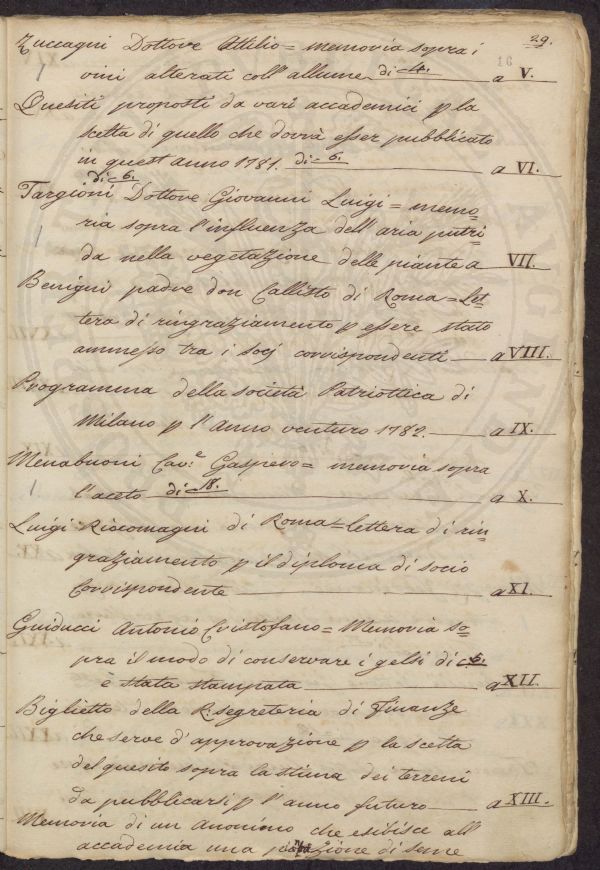 29.
16
Zuccagni Dottore Attilio = memoria sopra i
vini alterati coll'allume di c. 4. a V.
Quesiti proposti da varj accademici p la
scelta di quello che dovrà esser pubblicato
in quest'anno 1781. di c. 6. a VI.
di c. 6.
Targioni Dottore Giovanni Luigi = memo=
ria sopra l'influenza dell'aria putri=
da nella vegetazione delle piante a VII.
Benigni padre don Callisto di Roma = Let=
tera di ringraziamento p essere stato
ammesso tra i socj corrispondenti a VIII.
Programma della società Patriottica di
Milano p l'anno venturo 1782. a IX.
Menabuoni Cav.e Gaspero = memoria sopra
l'aceto di c. 18. a X.
Luigi Riccomagni di Roma = lettera di rin=
graziamento p il diploma di socio
Corrispondente a XI.
Guiducci Antonio Cristofano = Memoria so=
pra il modo di conservare i gelsi di c. 6.
è stata stampata a XII.
Biglietto della R. segreteria di Finanze
che serve d'approvazione p la scelta
del quesito sopra la stima dei terreni
da pubblicarsi p l'anno futuro a XIII.
Memoria di un Anonimo che esibisce all'
accademia una di seme